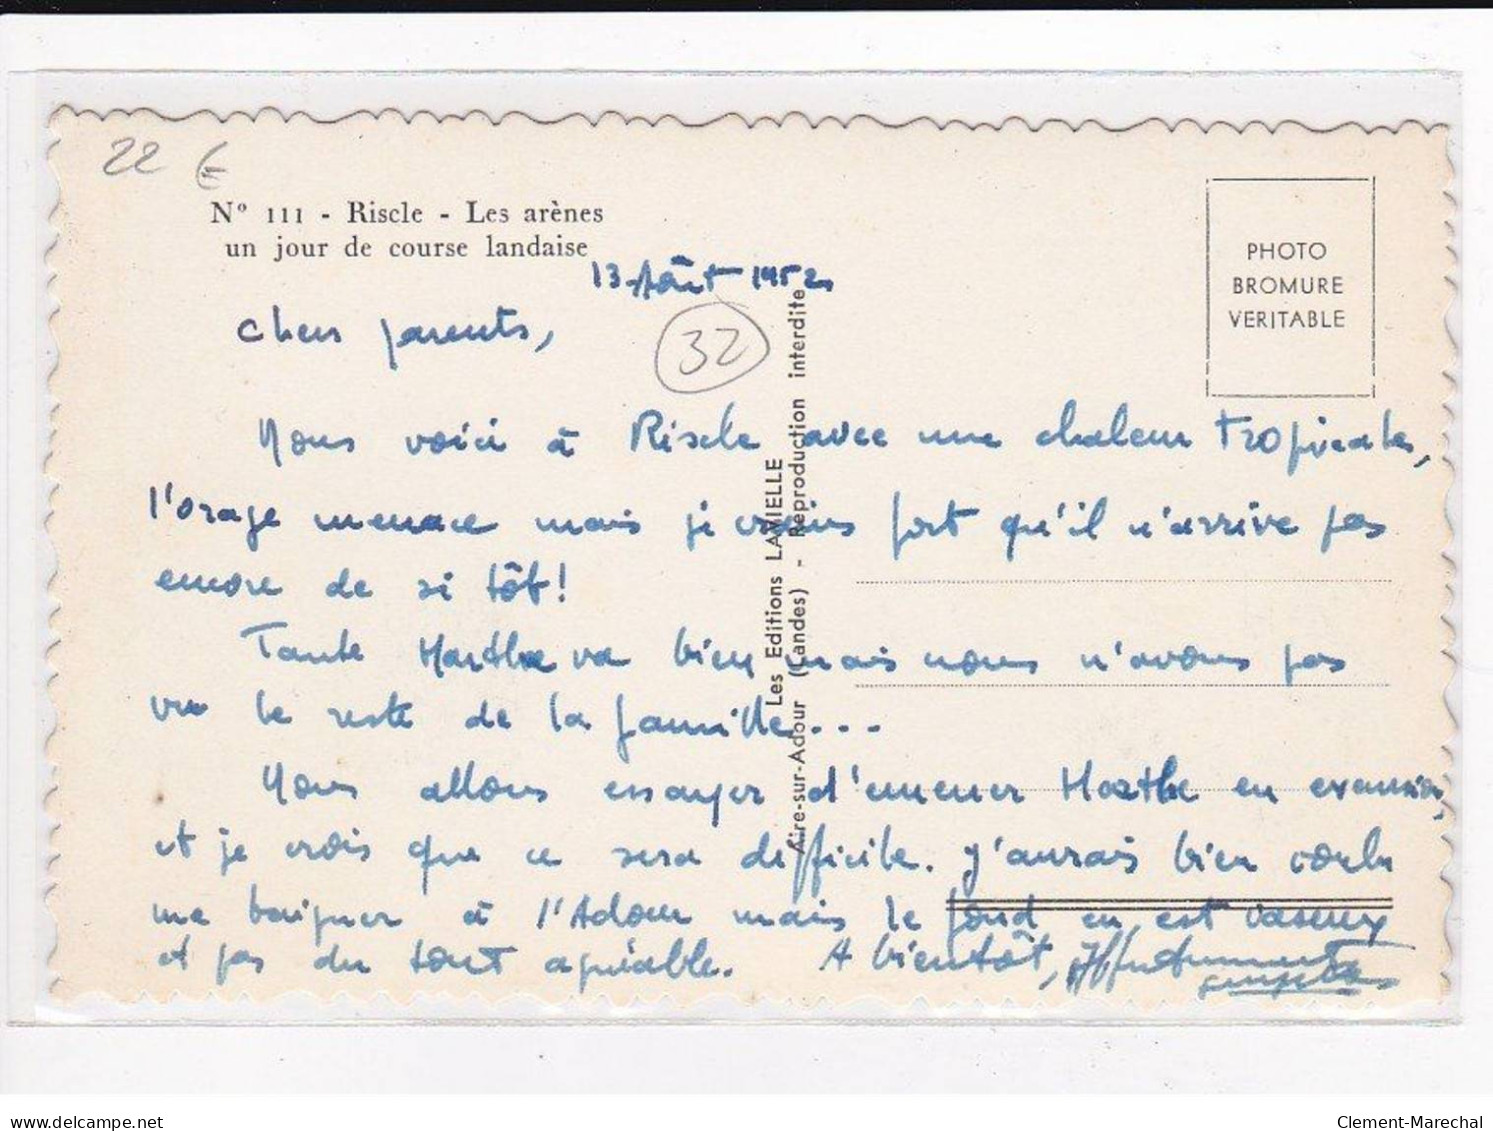 22 €
N° 111 - Riscle - Les arènes
un jour de course landaise
PHOTO
BROMURE
VERITABLE
13 Août 1952
Chers parents,
32
Les Editions LAVIELLE
Aire-sur-Adour (Landes) - Reproduction interdite
Nous voici à Riscle avec une chaleur tropicale,
l'orage menace mais je crains fort qu'il n'arrive pas
encore de si tôt!
Tante Marthe va bien mais nous n'avons pas
vu le reste de la famille...
Nous allons essayer d'emener Marthe en excursion,
et je crois que ce sera difficile. J'aurais bien voulu
me baigner à l'Adour mais le fond en est vaseux
et pas du tout agréable. A bientôt, Affectueusement
www.delcampe.net
Clement-Marechal